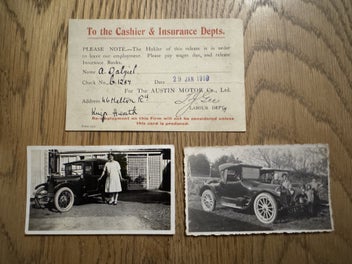 To the Cashier & Insurance Depts.
PLEASE NOTE.—The Holder of this release is in order
to leave our employment. Please pay wages due, and release
Insurance Books.
Name A. Dalziel
Check No. G.1284 Date 29 JAN 1919
For THE AUSTIN MOTOR Co., Ltd.
Address 66 Melton Rd
Kings Heath
LABOUR DEPT.
Re-employment on this Firm will not be considered unless
this card is produced.